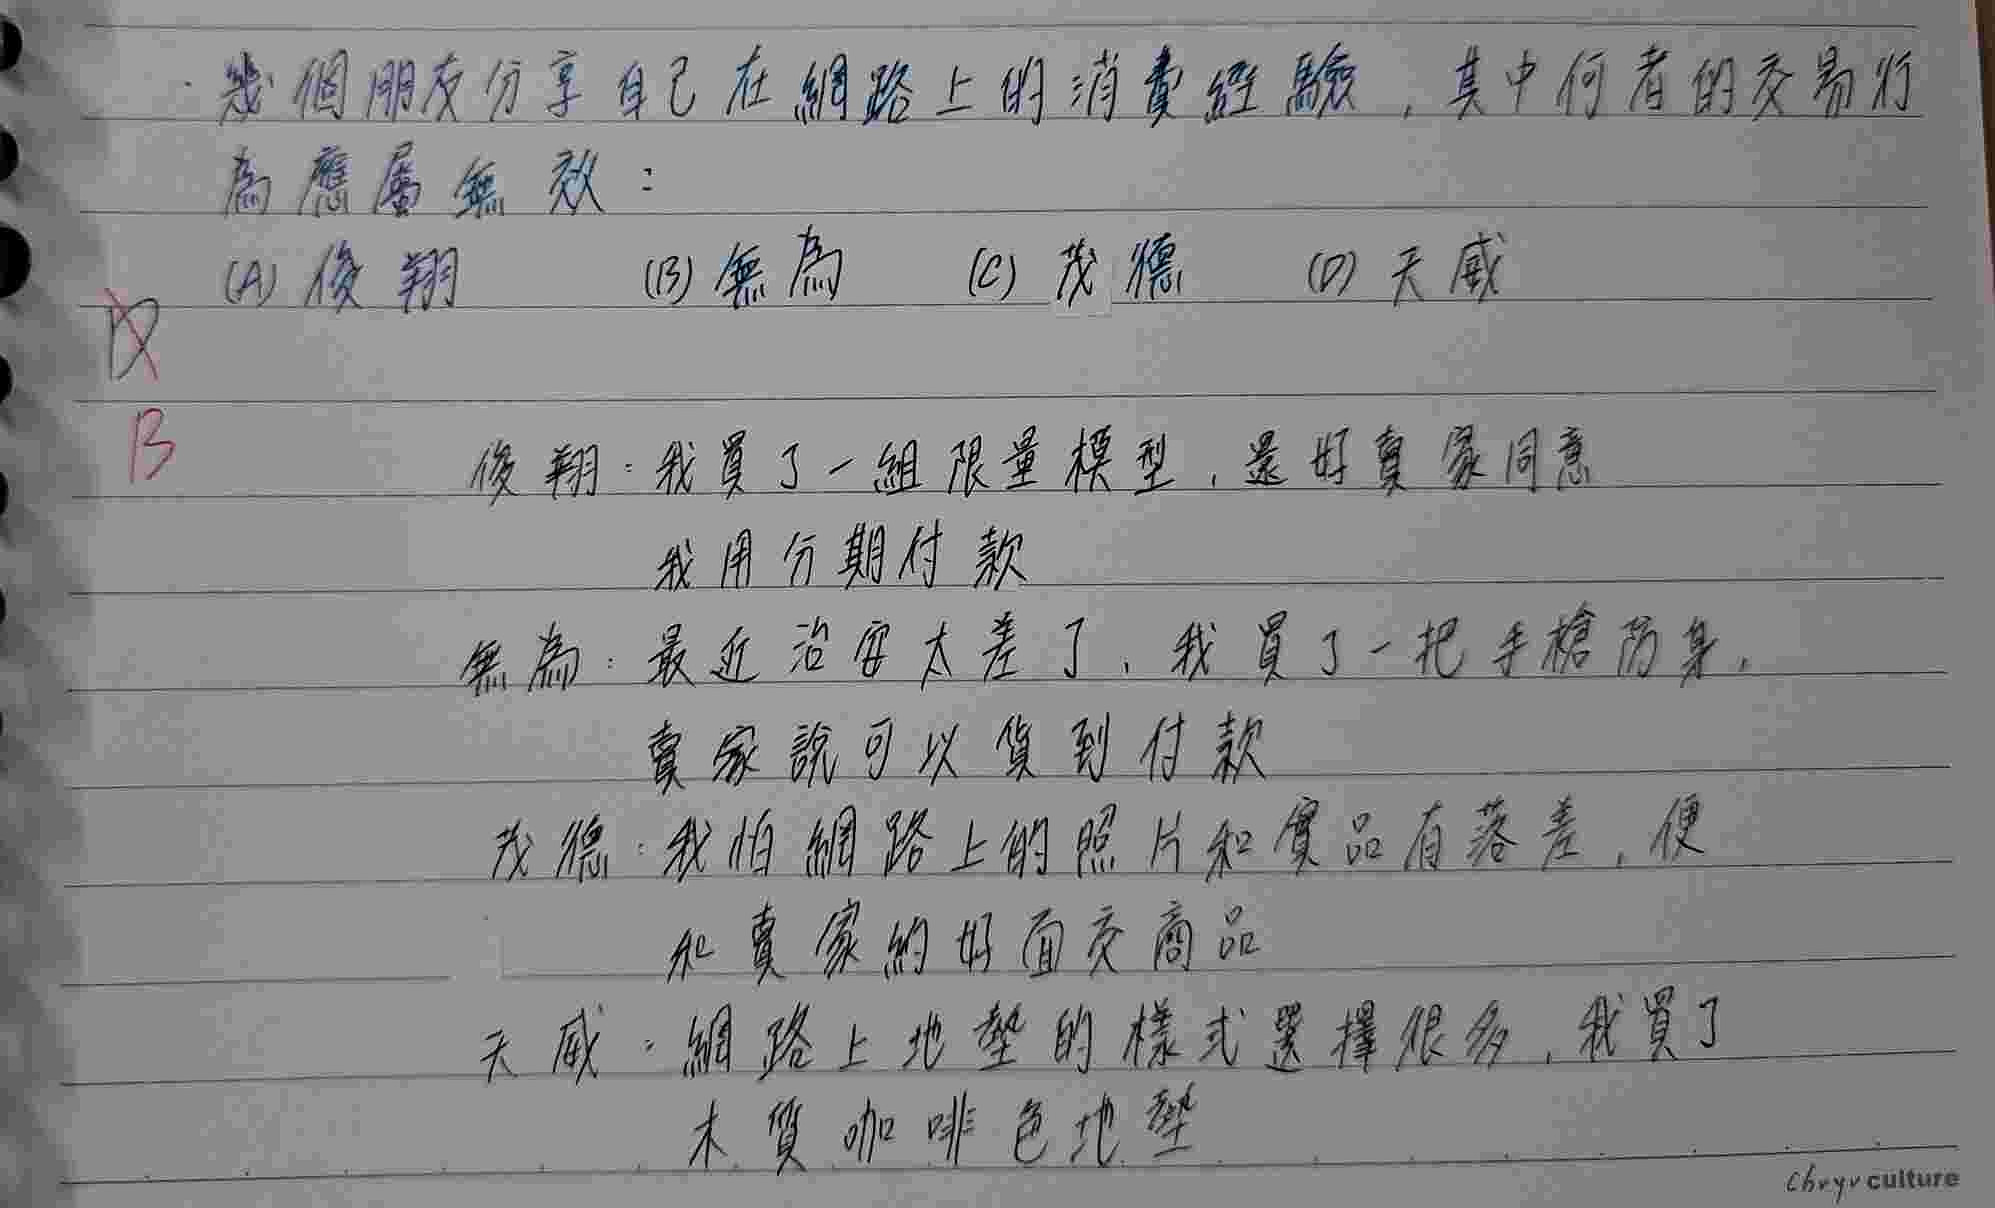 幾個朋友分享自己在網路上的消費經驗,其中何者的交易行
為應屬無效:
(A)俊翔 (B)無為 (C)茂德 (D)天威
D
B
俊翔:我買了一組限量模型,還好賣家同意
我用分期付款
無為:最近治安太差了,我買了一把手槍防身,
賣家說可以貨到付款
茂德:我怕網路上的照片和實品有落差,便
和賣家約好面交商品
天威:網路上地墊的樣式選擇很多,我買了
木質咖啡色地墊
culture